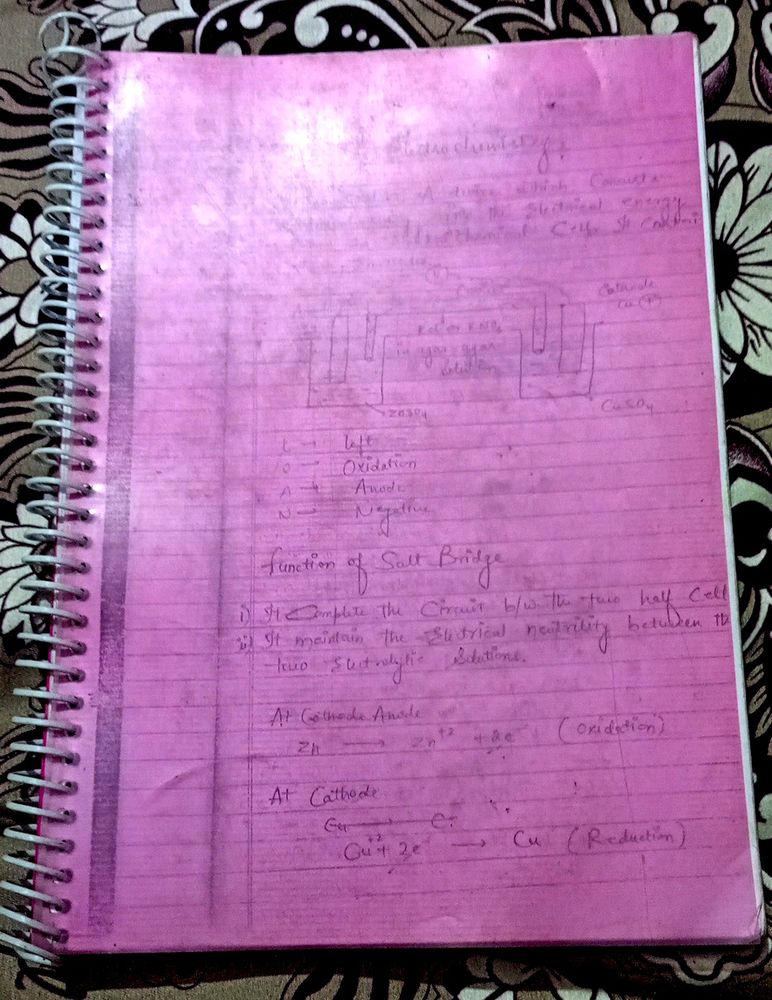 Electrochemistry
A device which Converts
into the Electrical energy
Cell. It
Cathode
Cu (+)
KCl or KNO3
in agar-agar
solution
ZnSO4
CuSO4
L → left
O → Oxidation
A → Anode
N → Negative
function of Salt Bridge
i) It Complete the Circuit b/w the two half Cell
ii) It maintain the Electrical neutrility between the
two Electrolytic Solutions.
At Cathode Anode
Zn → Zn+2 + 2e- (Oxidation)
At Cathode
Cu
Cu+2 + 2e- → Cu (Reduction)